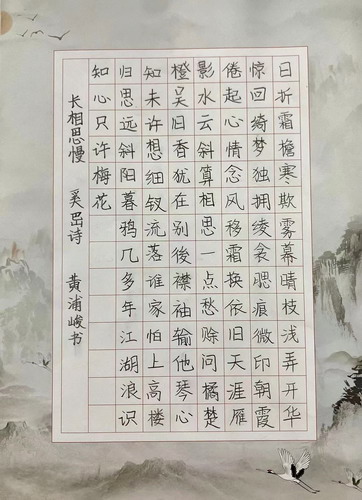 日折霜檐寒欺雾幕晴枝浅弄开华
惊回绮梦独拥绫衾腮痕微印朝霞
倦起心情念风移霜换依旧天涯雁
影水云斜算相思一点愁赊问橘楚
橙吴旧香犹在别後襟袖输他琴心
知未许想细钗流落谁家怕上高楼
归思远斜阳暮鸦几多年江湖浪识
知心只许梅花
长相思慢 奚岜诗 黄浦峻书